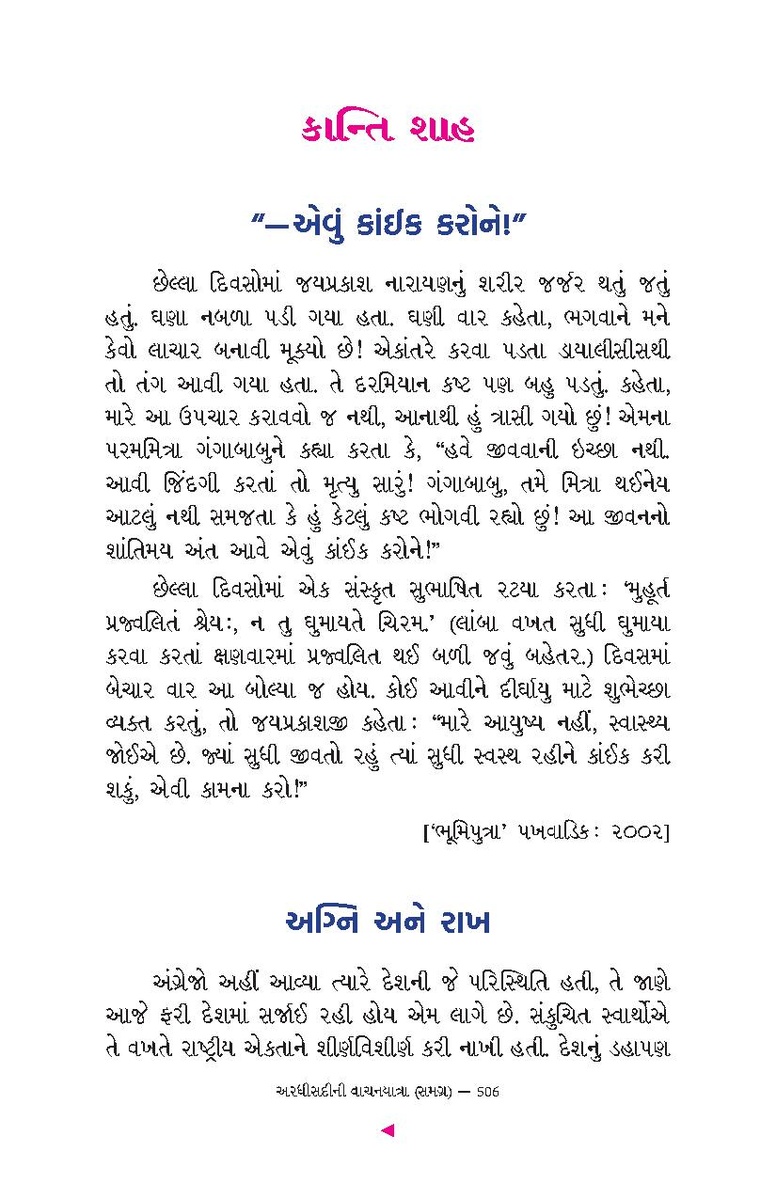 કાન્તિ શાહ
“—એવું કાંઈક કરોને!”
છેલ્લા દિવસોમાં જયપ્રકાશ નારાયણનું શરીર જર્જર થતું જતું
હતું. ઘણા નબળા પડી ગયા હતા. ઘણી વાર કહેતા, ભગવાને મને
કેવો લાચાર બનાવી મૂક્યો છે! એકાંતરે કરવા પડતા ડાયાલીસીસથી
તો તંગ આવી ગયા હતા. તે દરમિયાન કષ્ટ પણ બહુ પડતું. કહેતા,
મારે આ ઉપચાર કરાવવો જ નથી, આનાથી હું ત્રાસી ગયો છું! એમના
પરમમિત્રા ગંગાબાબુને કહ્યા કરતા કે, “હવે જીવવાની ઇચ્છા નથી.
આવી જિંદગી કરતાં તો મૃત્યુ સારું! ગંગાબાબુ, તમે મિત્રા થઈનેય
આટલું નથી સમજતા કે હું કેટલું કષ્ટ ભોગવી રહ્યો છું! આ જીવનનો
શાંતિમય અંત આવે એવું કાંઈક કરોને!”
છેલ્લા દિવસોમાં એક સંસ્કૃત સુભાષિત રટયા કરતા: ‘મુહૂર્ત
પ્રજ્વલિતં શ્રેય:, ન તુ ધુમાયતે ચિરમ.’ (લાંબા વખત સુધી ધુમાયા
કરવા કરતાં ક્ષણવારમાં પ્રજ્વલિત થઈ બળી જવું બહેતર.) દિવસમાં
બેચાર વાર આ બોલ્યા જ હોય. કોઈ આવીને દીર્ઘાયુ માટે શુભેચ્છા
વ્યક્ત કરતું, તો જયપ્રકાશજી કહેતા: “મારે આયુષ્ય નહીં, સ્વાસ્થ્ય
જોઈએ છે. જ્યાં સુધી જીવતો રહું ત્યાં સુધી સ્વસ્થ રહીને કાંઈક કરી
શકું, એવી કામના કરો!”
[‘ભૂમિપુત્રા’ પખવાડિક: ૨૦૦૨]
અગ્નિ અને રાખ
અંગ્રેજો અહીં આવ્યા ત્યારે દેશની જે પરિસ્થિતિ હતી, તે જાણે
આજે ફરી દેશમાં સર્જાઈ રહી હોય એમ લાગે છે. સંકુચિત સ્વાર્થોએ
તે વખતે રાષ્ટ્રીય એકતાને શીર્ણવિશીર્ણ કરી નાખી હતી. દેશનું ડહાપણ
અરધીસદીની વાચનયાત્રા (સમગ્ર) — 506